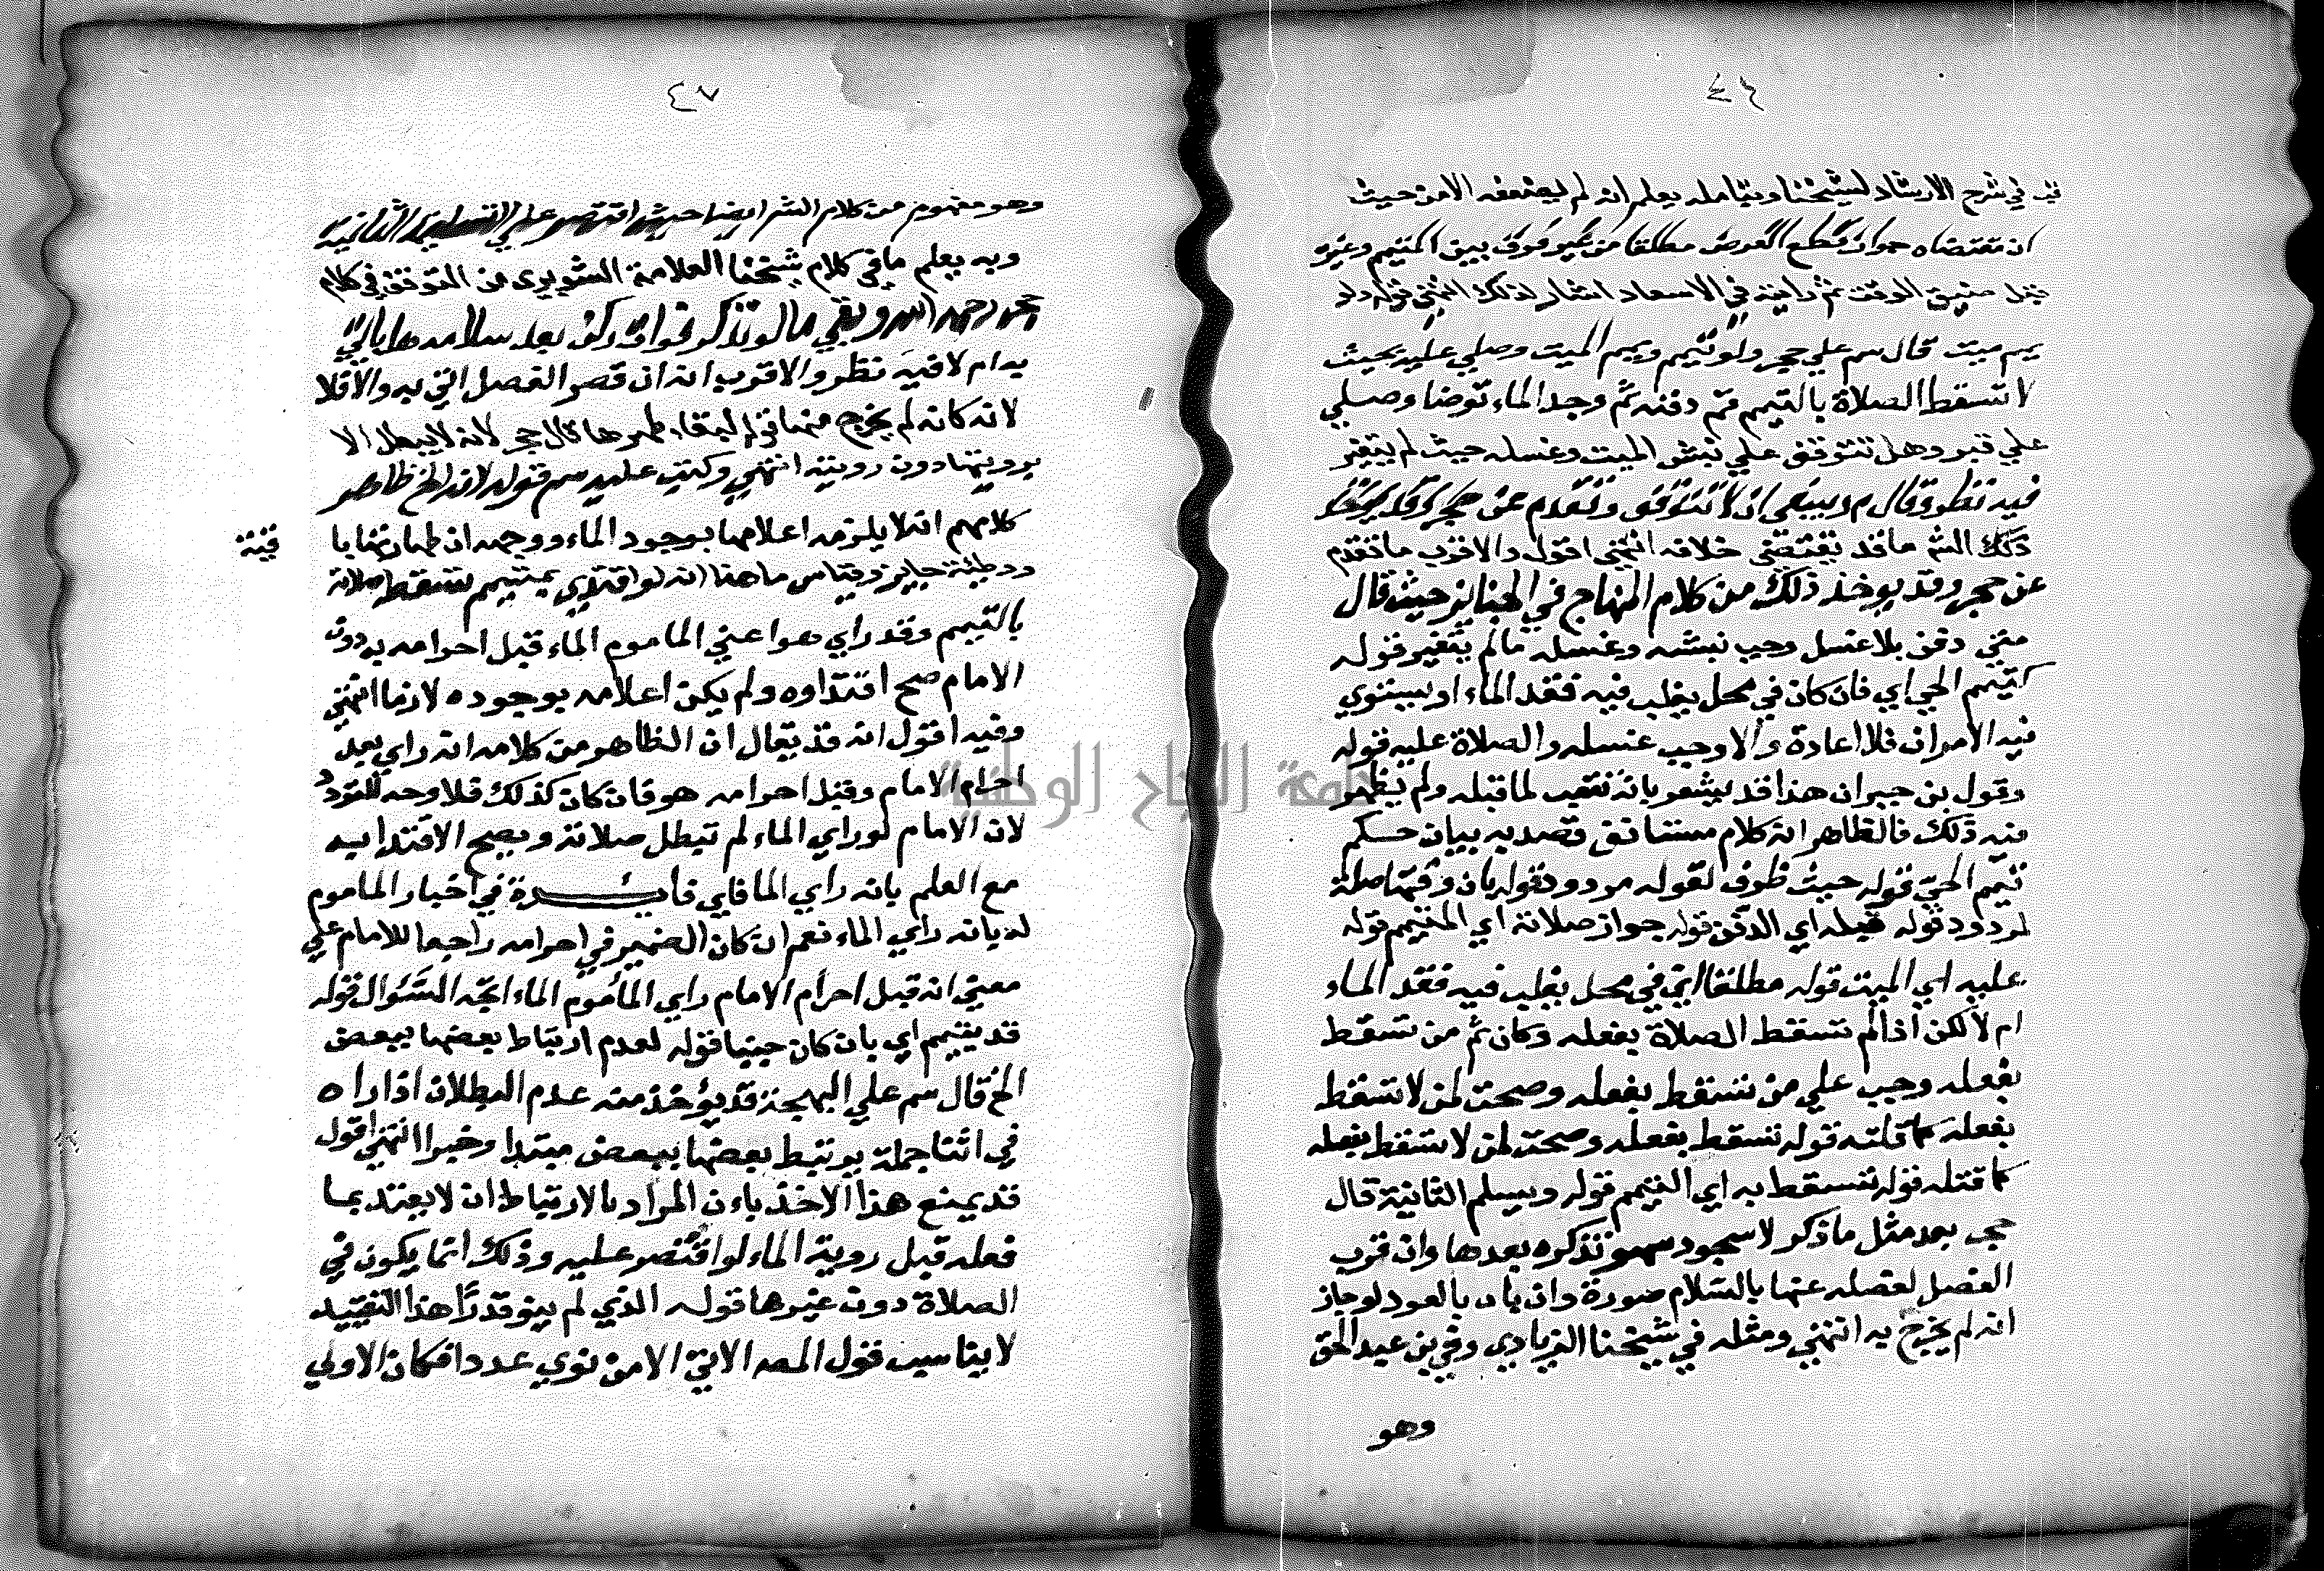 ٤٦
في شرح الارشاد لشيخنا وبتامله يعلم انه لم يضعفه الا من حيث
ان مقتضاه جواز قطع الفرض مطلقا من غير فرق بين المتيمم وغيره
قبل ضيق الوقت ثم رايته في الاسعاد اشار لذلك انتهى قوله ولو
يمم ميت قال سم علي حجر ولو تيمم ويمم الميت وصلي عليه بحيث
لا تسقط الصلاة بالتيمم ثم دفنه ثم وجد الماء توضا وصلي
علي قبره وهل تتوقف علي نبش الميت وغسله حيث لم يتغير
فيه نظر وقال م ر ينبغي ان لا تتوقف وتقدم عن حجر
ذلك الشم ما قد يقتضي خلافه انتهى اقول والاقرب ما تقدم
عن حجر وقد يوخذ ذلك من كلام المنهاج في الجنايز حيث قال
متى دفن بلا غسل وجب نبشه وغسله ما لم يتغير قوله
كتيمم الحي اي فان كان في محل يغلب فيه فقد الماء او يستوي
فيه الامران فلا اعادة والا وجب غسله والصلاة عليه قوله
وقول بن جبران هذا قد يشعر بانه تعقيب لما قبله ولم يظهر
منه ذلك فالظاهر انه كلام مستانف قصد به بيان حكم
تيمم الحي قوله حيث ظرف لقوله مردود قوله بان وقتها صلة
لمردود قوله قبله اي الدفن قوله جواز صلاته اي المتيمم قوله
عليه اي الميت قوله مطلقا اي في محل يغلب فيه فقد الماء
ام لا لكن اذا لم تسقط الصلاة بفعله وكان ثم من تسقط
بفعله وجب علي من تسقط بفعله وصحت لمن لا تسقط
بفعله كما قلته قوله تسقط بفعله وصحت لمن لا تسقط بفعله
كما قتله قوله تسقط به اي التيمم قوله ويسلم الثانية قال
حج بعد مثل ما ذكر لا سجود سهو تذكره بعدها وان قرب
الفصل لفصله عنها بالسلام صورة وان بان بالعود لو جاز
انه لم يخرج به انتهى ومثله في شيخنا الزيادي وفي بن عبد الحق
وهو
٤٧
وهو مفهوم من كلام الشر ايضا حيث اقتصر علي التسليمة الثانية
وبه يعلم ما في كلام شيخنا العلامة الشوبري من التوقف في كلام
حجر رحمه الله وبقي ما لو تذكر فوات ركن بعد سلامه هل ياتي
به ام لا فيه نظر والاقرب انه ان قصر الفصل اتي به والا فلا
لانه كانه لم يخرج منها قوله لبقاء طهرها قال حجر لانه لا يبطل الا
برويتها دون رويته انتهي وكتب عليه سم قوله لانه الخ ظاهر
كلامهم انه لا يلزمه اعلامها بوجود الماء ووجهه ان طهارتها باقية
ووطئه جايز وقياس ما هنا انه لو اقتدي بمتيمم تسقط صلاته
بالتيمم وقد راي هو اعني الماموم الماء قبل احرامه به دون
الامام صح اقتداوه ولم يكن اعلامه بوجوده لازما انتهي
وفيه اقول انه قد يقال ان الظاهر من كلامه انه راي بعد
احرام الامام وقبل احرامه هو فان كان كذلك فلا وجه للتردد
لان الامام لو راي الماء لم تبطل صلاته ويصح الاقتدا به
مع العلم بانه راي الما فاي فائدة في اخبار الماموم
له بانه راي الماء نعم ان كان الضمير في احرامه راجعا للامام علي
معني انه قبل احرام الامام راي الماموم الماء اتجه السئوال قوله
قد يتيمم اي بان كان جنبا قوله لعدم ارتباط بعضها ببعض
الخ قال سم علي البهجة قد يؤخذ منه عدم البطلان اذا راه
في اثنا جملة يرتبط بعضها ببعض مبتدا وخبرا انتهي اقول
قد يمنع هذا الاخذ باءن المراد بالارتباط ان لا يعتد بما
فعله قبل روية الماء لو اقتصر عليه وذلك انما يكون في
الصلاة دون غيرها قوله الذي لم ينو قدرا هذا التقييد
لا يناسب قول المصر الاتي الا من نوي عددا فكان الاولي